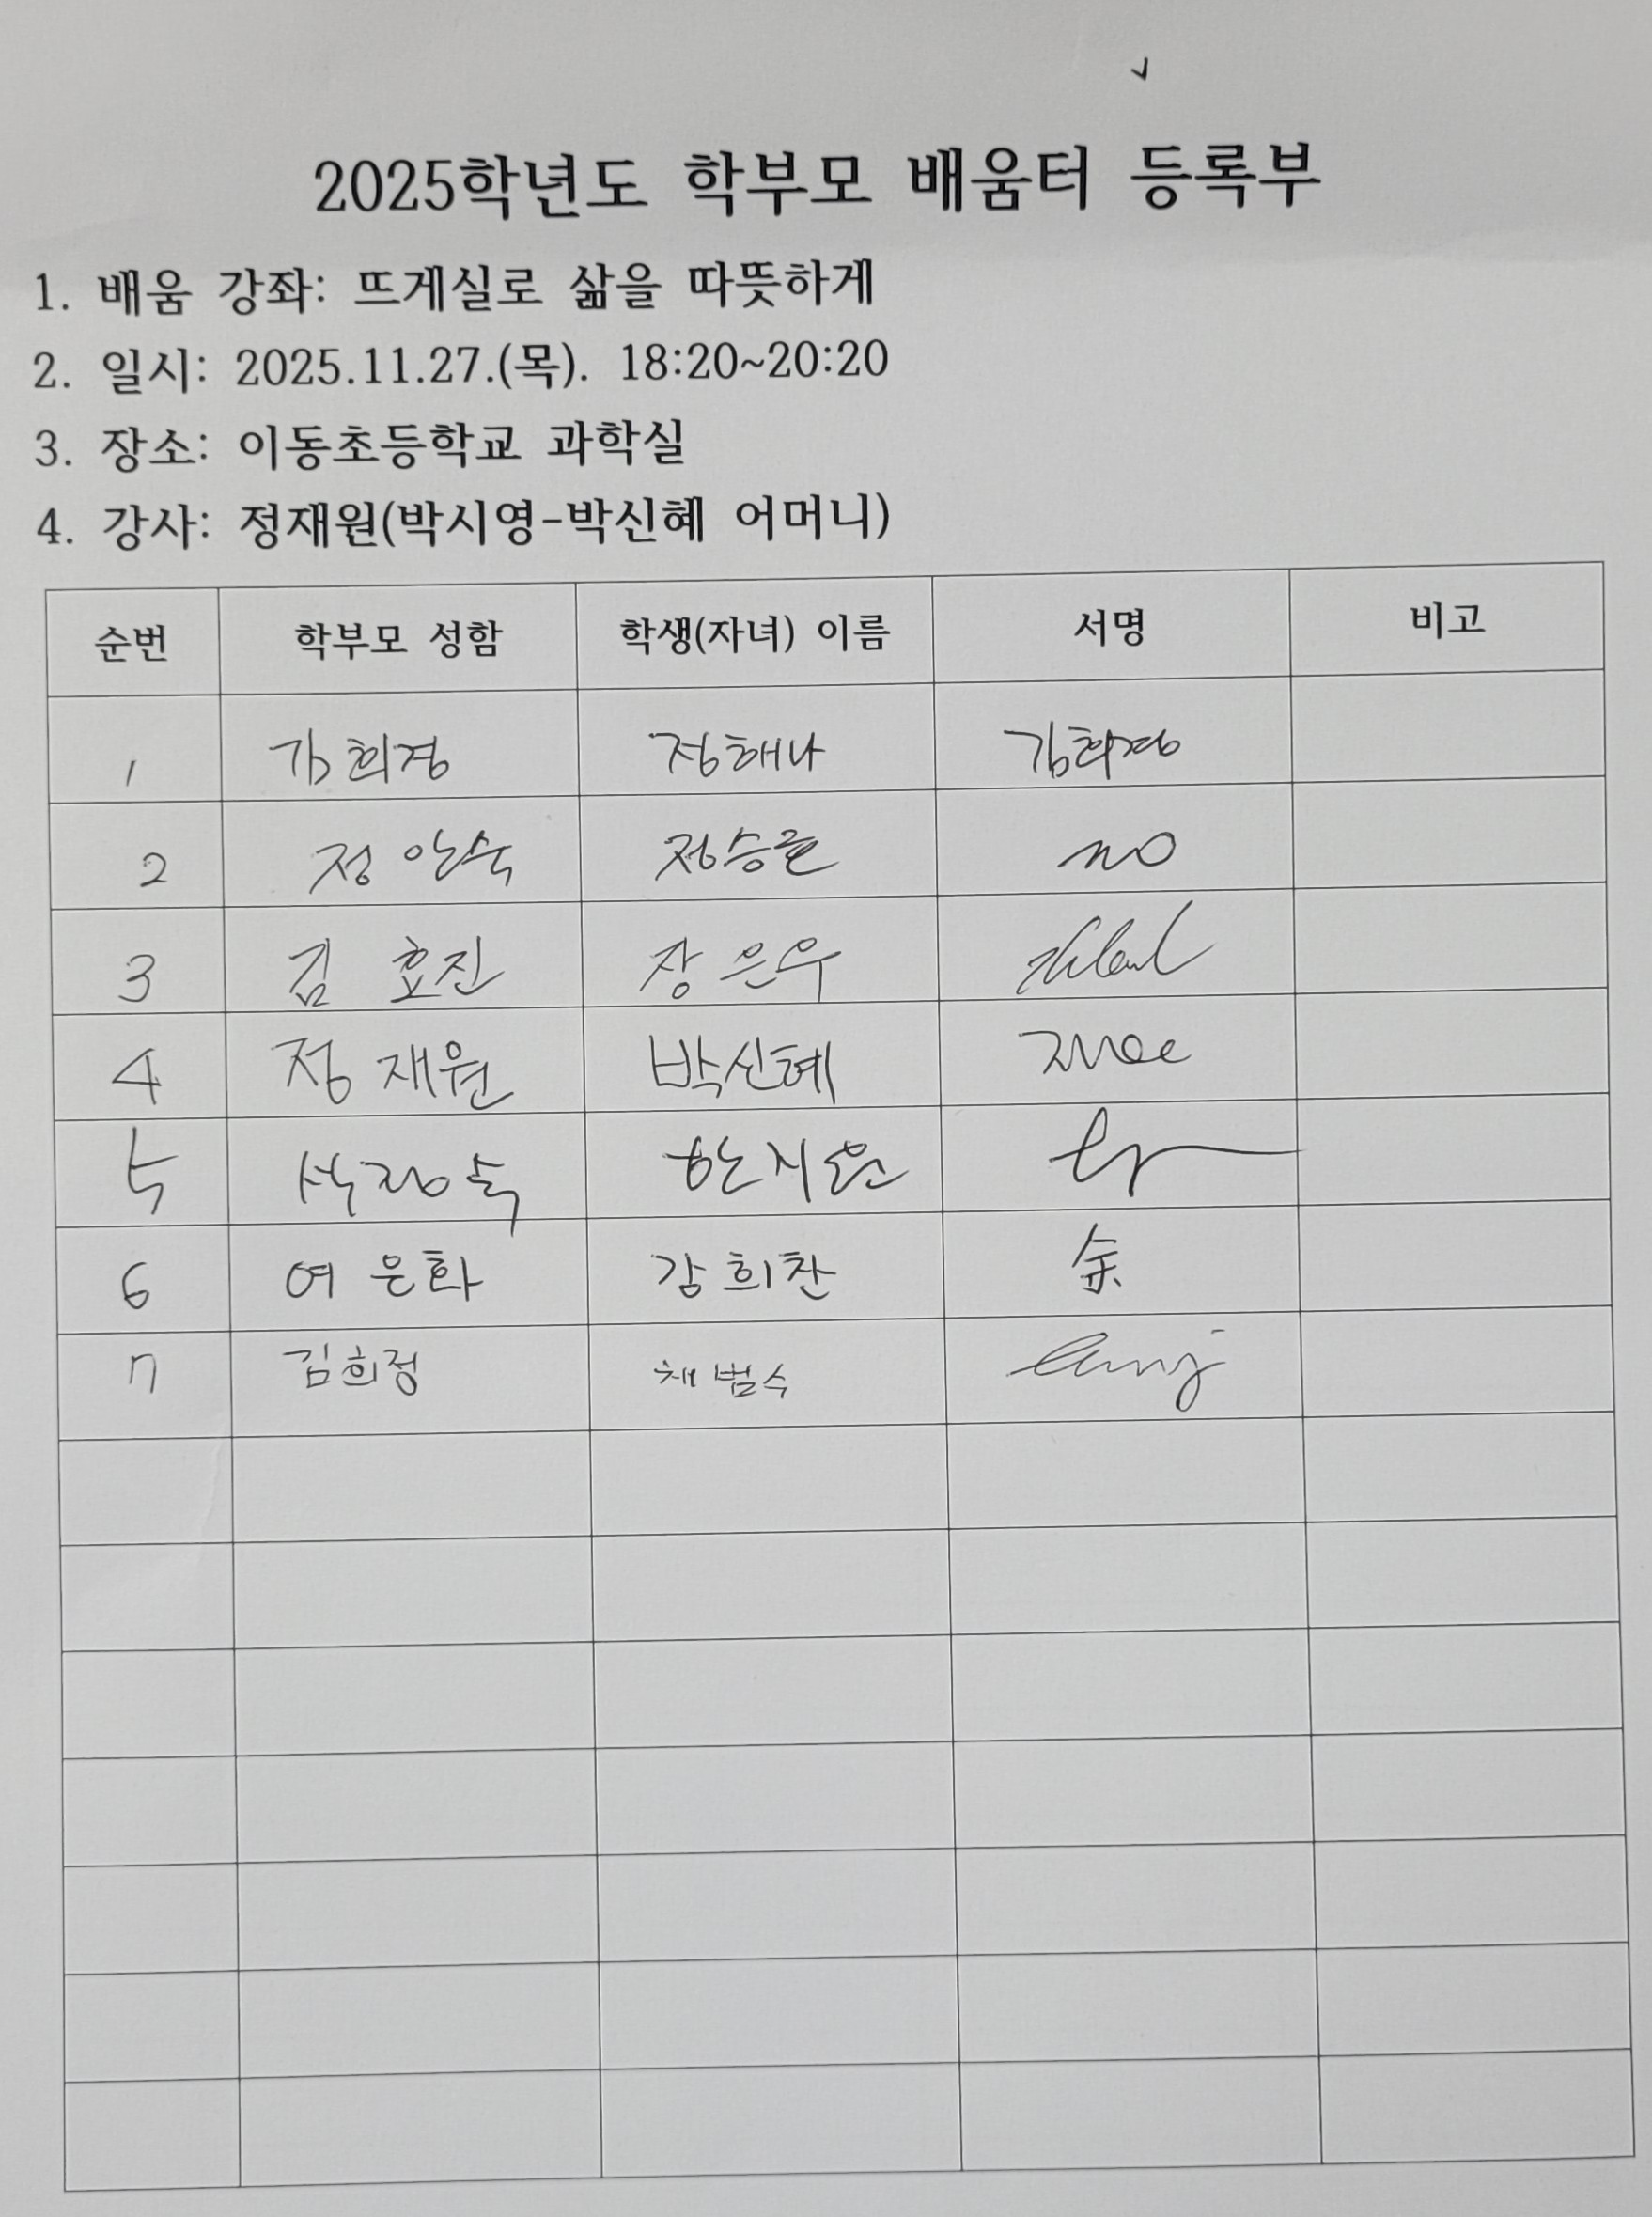 2025학년도 학부모 배움터 등록부
1. 배움 강좌: 뜨게실로 삶을 따뜻하게
2. 일시: 2025.11.27.(목). 18:20~20:20
3. 장소: 이동초등학교 과학실
4. 강사: 정재원(박시영-박신혜 어머니)
순번 학부모 성함 학생(자녀) 이름 서명 비고
1 김희경 정해나 김희경
2 정안숙
3 김 효진 장은우
4 정재원 박신혜
5 석정숙 한지원
6 여은화 강희찬 余
7 김희정 채범수